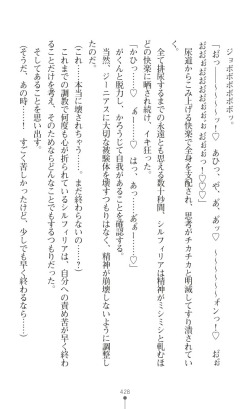 ジョボボボボボボッ。
「おっ♡　～～～～～ッ！　あひっ、や、あ、あッ♡　～～～～～ォンっ！♡
おおおおおおおおおおおおおおっ！♡♡♡」
　尿道からこみ上げる快楽で全身を支配され、思考がチカチカと明滅してすり潰されていく。
　全て排尿するまでの永遠とも思える数十秒間、シルフィリアは精神がミシミシと軋むほどの快楽に晒され続け、イキ狂った。
「かひっ……♡　あぁー……♡　～～あぁー……♡」
　がくんと脱力し、かろうじて自我があることを確認する。
　当然、ジーニアスに大切な被験体を壊すつもりはなく、精神が崩壊しないように調整したのだ。
（これ……本当に壊されちゃう……。まだ終わらないの……）
　これまでの調教で何度も心が折られているシルフィリアは、自分への責め苦が早く終わることだけを考え、そのためならどんなことでもするつもりだった。
　そしてあることを思い出す。
（そうだ、あの時……！　すごく苦しかったけど、少しでも早く終わるなら……）
428